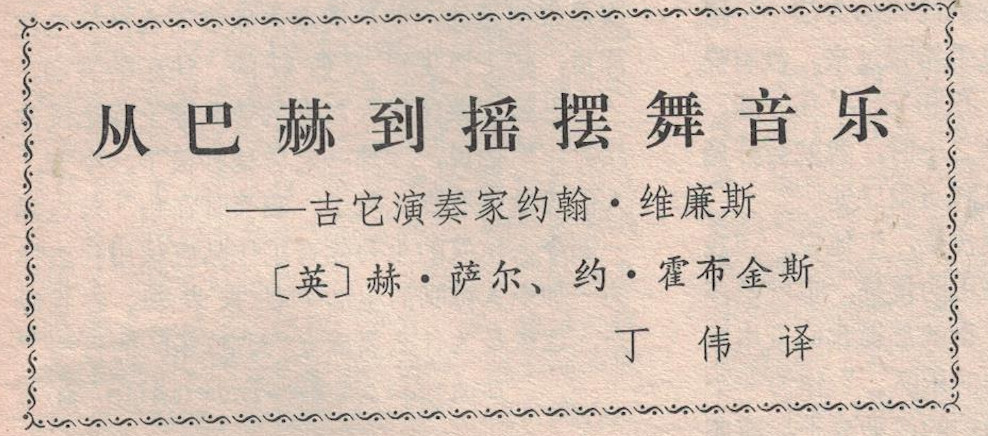 从巴赫到摇摆舞音乐
——吉它演奏家约翰·维廉斯
〔英〕赫·萨尔、约·霍布金斯
丁 伟 译